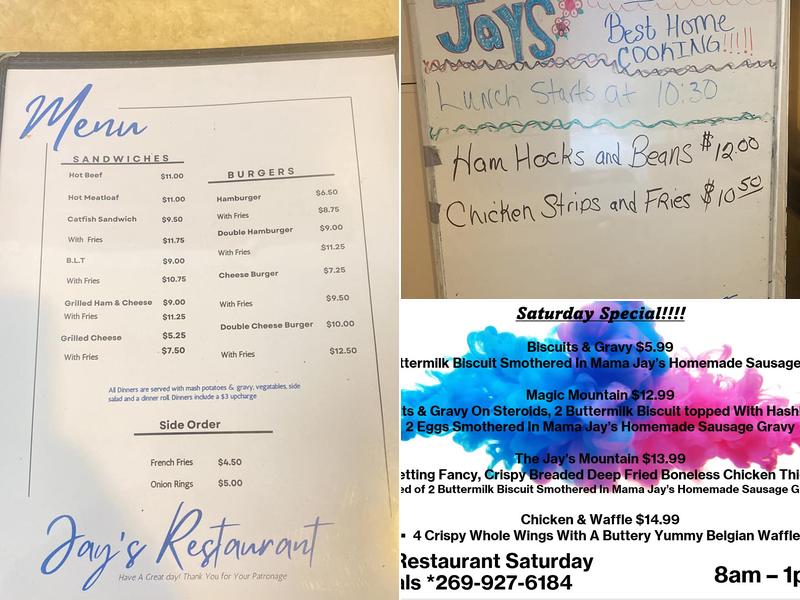 Menu
SANDWICHES
Hot Beef $11.00
Hot Meatloaf $11.00
Catfish Sandwich $9.50
With Fries $11.75
B.L.T $9.00
With Fries $10.75
Grilled Ham & Cheese $9.00
With Fries $11.25
Grilled Cheese $5.25
With Fries $7.50
BURGERS
Hamburger $6.50
With Fries $8.75
Double Hamburger $9.00
With Fries $11.25
Cheese Burger $7.25
With Fries $9.50
Double Cheese Burger $10.00
With Fries $12.50
All Dinners are served with mash potatoes & gravy, vegatables, side
salad and a dinner roll. Dinners include a $3 upcharge
Side Order
French Fries $4.50
Onion Rings $5.00
Jay's Restaurant
Have A Great day! Thank You for Your Patronage
JayS
Best Home
COOKING!!!!!
Lunch Starts at 10:30
Ham Hocks and Beans $12.00
Chicken Strips and Fries $10.50
Saturday Special!!!!
Biscuits & Gravy $5.99
ttermilk Biscuit Smothered In Mama Jay's Homemade Sausage
Magic Mountain $12.99
ts & Gravy On Steroids, 2 Buttermilk Biscuit topped With Hash
2 Eggs Smothered In Mama Jay's Homemade Sausage Gravy
The Jay's Mountain $13.99
etting Fancy, Crispy Breaded Deep Fried Boneless Chicken Thi
ed of 2 Buttermilk Biscuit Smothered In Mama Jay's Homemade Sausage G
Chicken & Waffle $14.99
4 Crispy Whole Wings With A Buttery Yummy Belgian Waffle
Restaurant Saturday
als *269-927-6184
8am – 1p